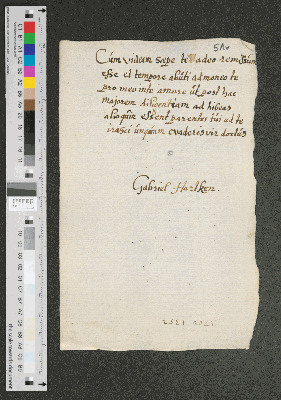 51r
Cum videam sæpe te adeo remissum
esse et tempore abuti admoneo te
pro meo in te amore ut post hac
majorem diligentiam adhibeas
alioquin essent parentes tui ad te
irasci unquam evaderes vir doctus
Gabriel Hartken.